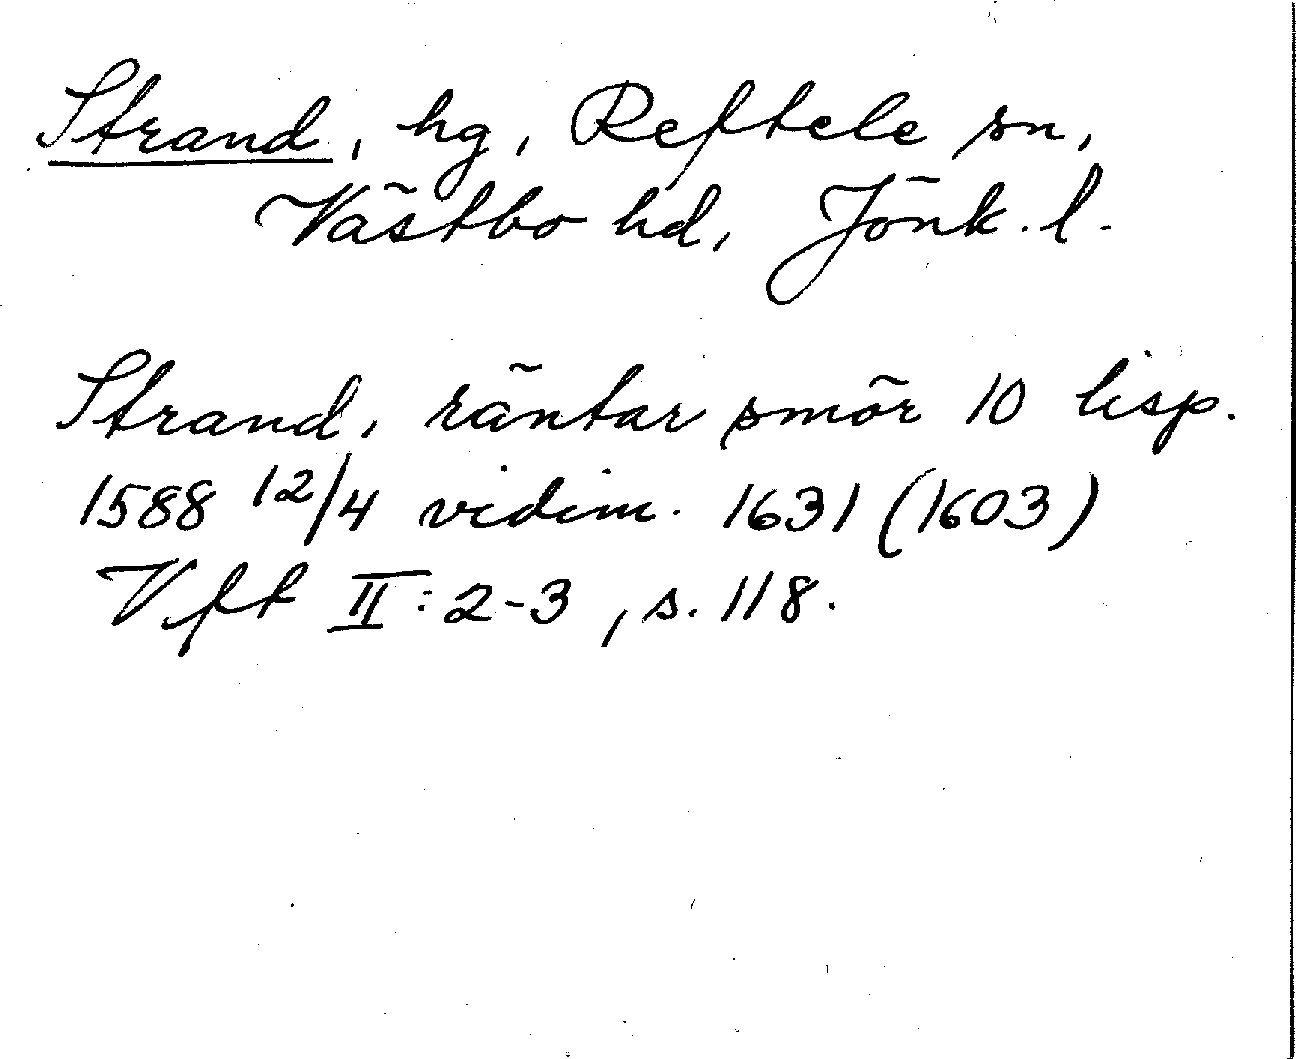 Strand, hg, Reftele sn,
Västbo hd, Jönk. l.
Strand, räntar smör 10 lisp.
1588 12/4 vidim. 1631 (1603)
Vft II:2-3, s. 118.